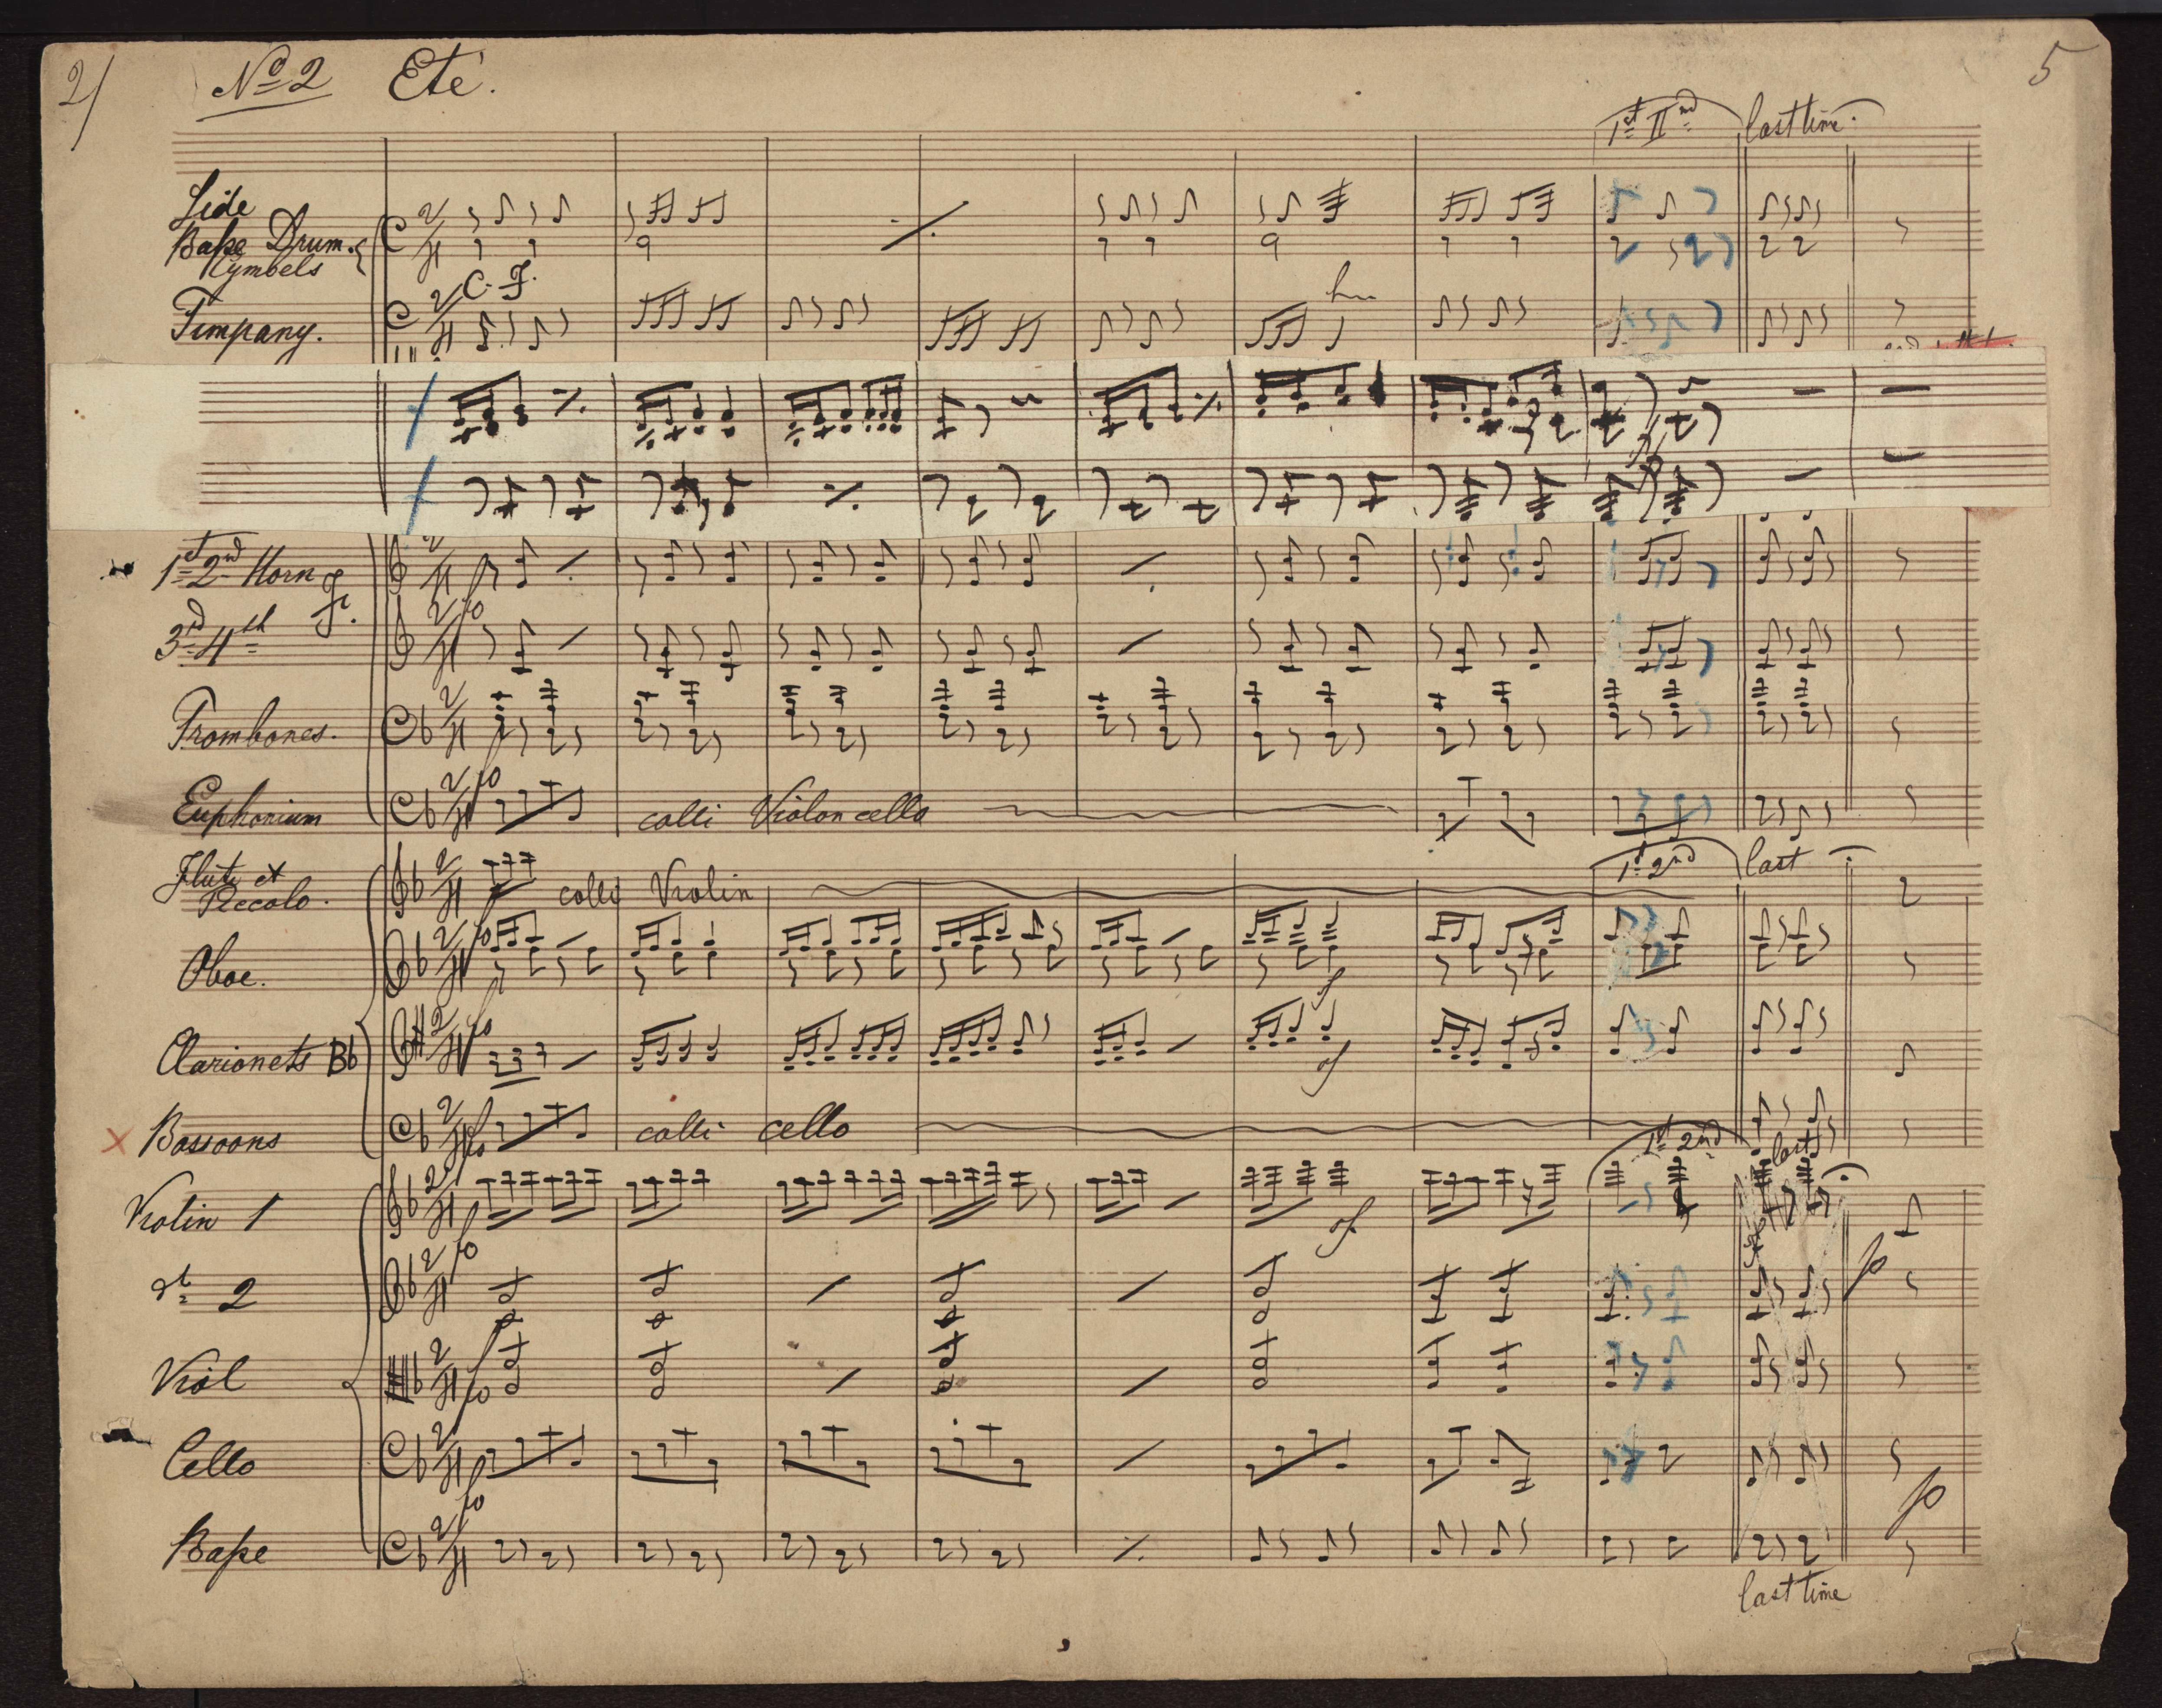 2/ No 2 Eté. 5
1st IInd last time.
Side
Basse Drum.
Cymbels
C. F.
Timpany.
1st 2nd Horn
F.
3rd 4th
fo
Trombones.
Euphonium fo colli Violon cello
Flute et
Piccolo. colli Violin 1st 2nd last
Oboe. fo
sf
Clarionets Bb fo
sf
Bassoons fo colli cello
1st 2nd last
Violin 1
sf
fo
do 2
fo
Viol fo
Cello
fo
fo
Basse
last time